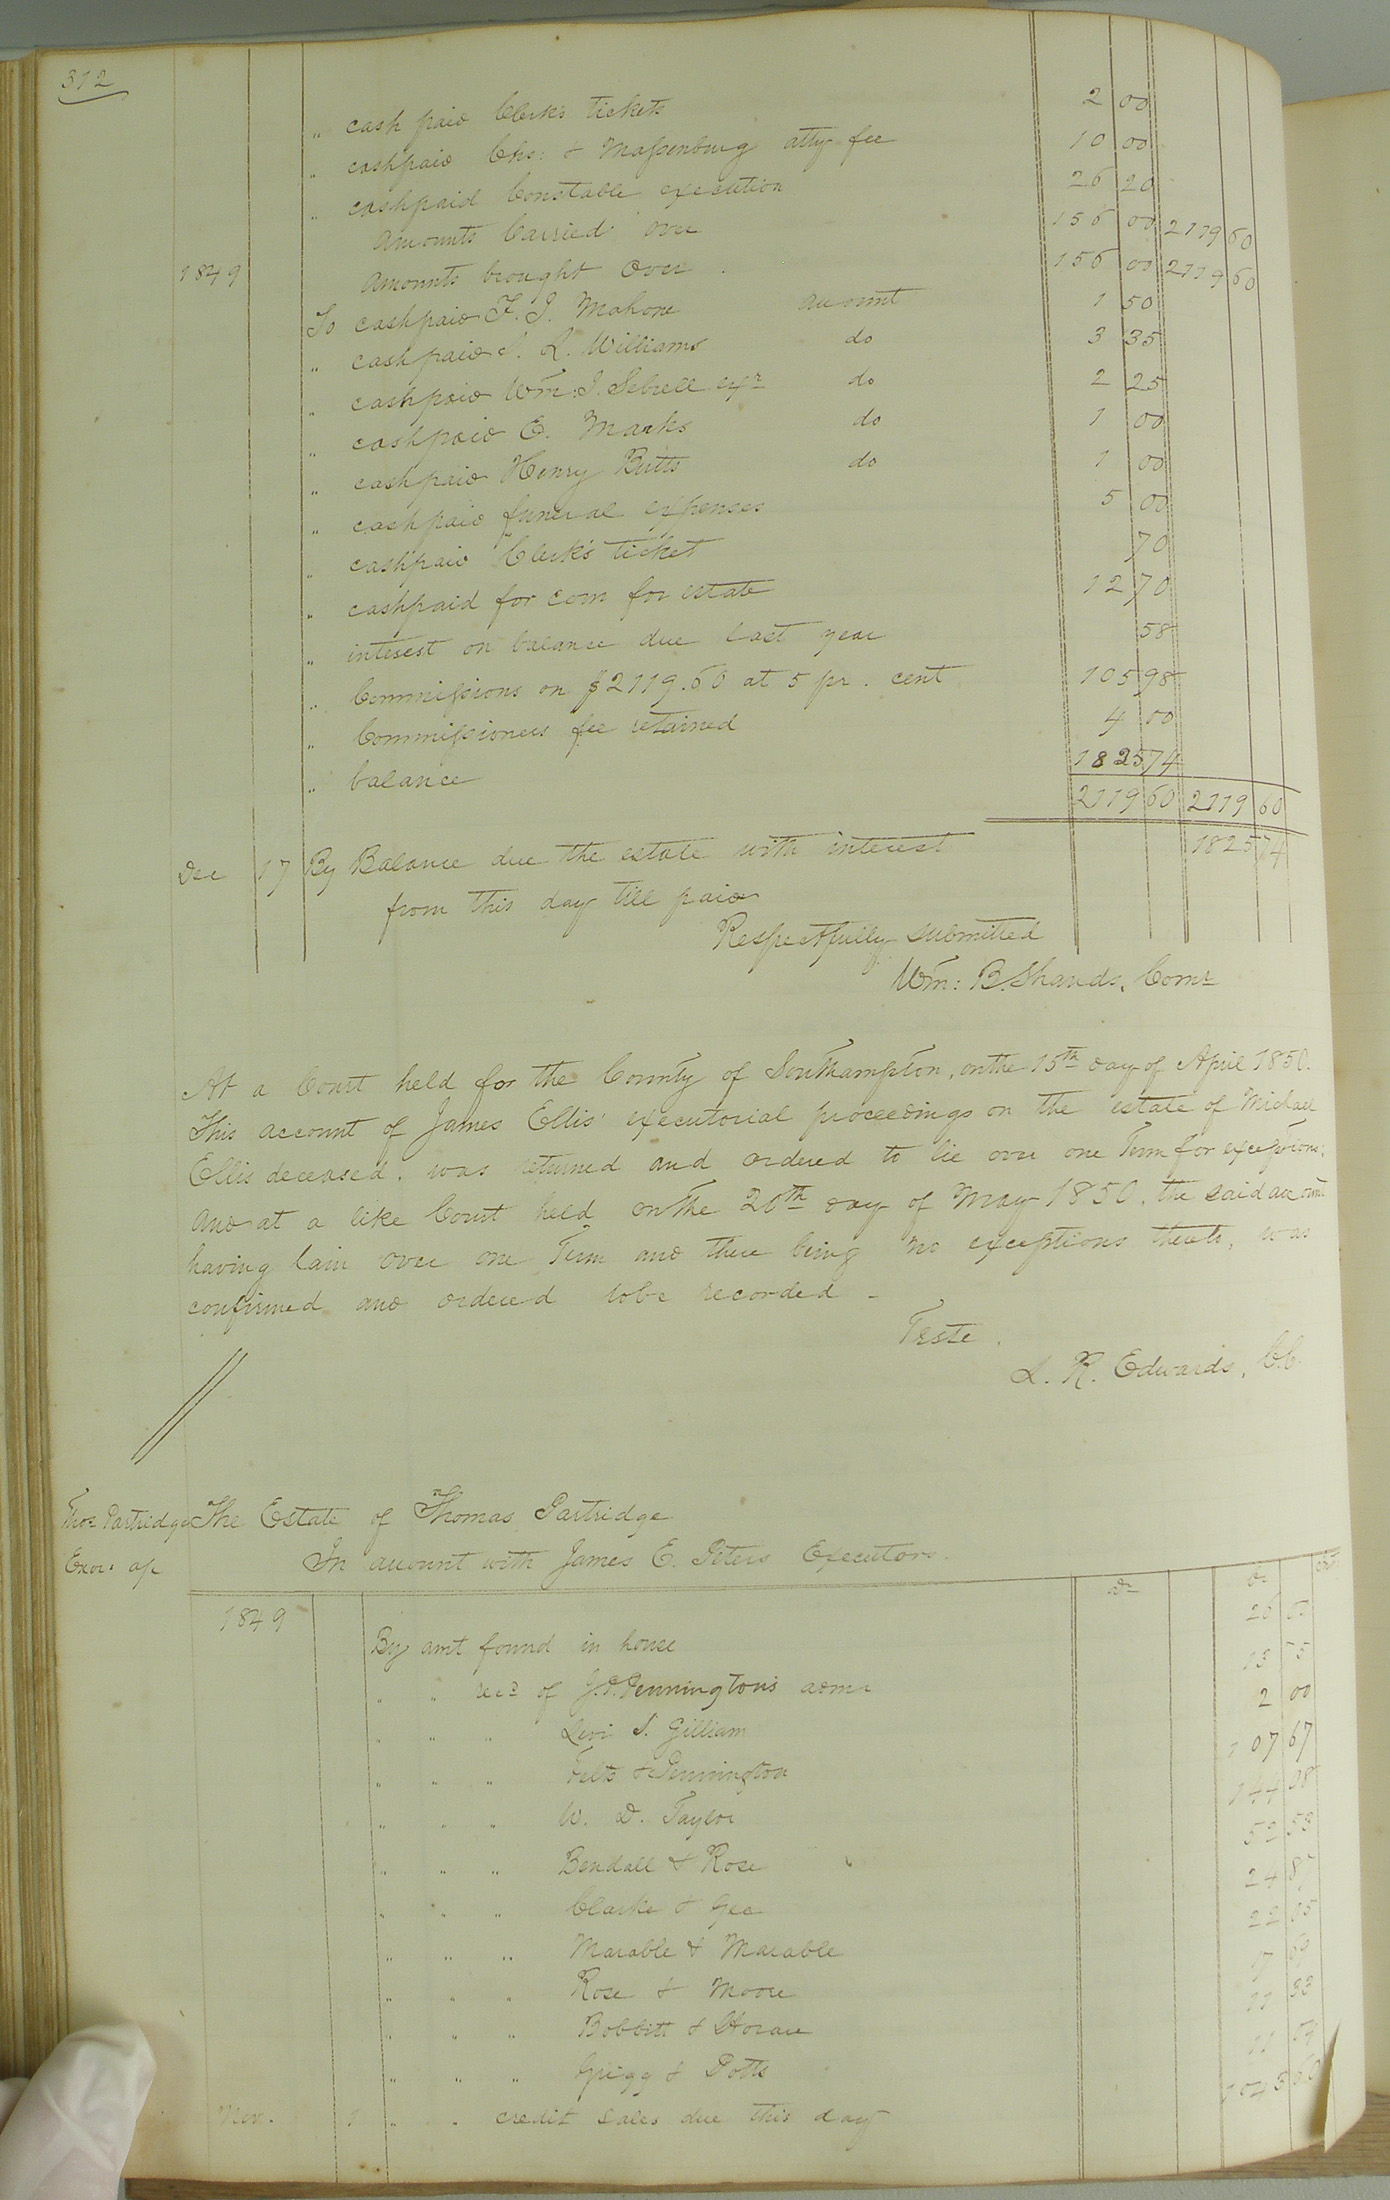 312
" cash paid Clerks tickets 2 00
" cash paid Chs: & Massenburg atty fee 10 00
" cash paid Constable execution 26 20
Amounts Carried over 156 00 2119 60
1849 Amounts brought over 156 00 2119 60
To cash paid F. J. Mahone account 1 50
" cash paid J. R. Williams do 3 35
" cash paid Wm: J. Sebrell exr do 2 25
" cash paid E. Marks do 1 00
" cash paid Henry Butts do 1 00
" cash paid funeral expenses 5 00
" cash paid Clerk's ticket 70
" cash paid for corn for estate 12 70
" interest on balance due last year 58
" Commissions on $2119.60 at 5 pr. cent 105 98
" Commissioners fee retained 4 00
" balance 1825 74
2119 60 2119 60
Dec 17 By Balance due the estate with interest 1825 74
from this day till paid
Respectfully submitted
Wm: B. Shands, Comr
At a Court held for the County of Southampton, on the 15th day of April 1850.
This account of James Ellis' executorial proceedings on the estate of Michael
Ellis deceased, was returned and ordered to lie over one Term for exceptions;
And at a like Court held on the 20th day of May 1850, the said account
having lain over one Term and there being no exceptions thereto, was
confirmed and ordered to be recorded -
Teste.
L. R. Edwards, C.C.
Thos Partridge The Estate of Thomas Partridge
Exor. a/c In account with James E. Peters Executor.
Dr Cr
1849 By amt found in house 26 00
" " recd of J. P. Pennington's admr 13
" " " Levi S. Gilliam 2 00
" " " Felts & Pennington 107 67
" " " W. D. Taylor 144 08
" " " Bendall & Rose 52 53
" " " Clarke & Gee 24 87
" " " Marable & Marable 22 05
" " " Rose & Moore
" " " Bobbitt & Horan 11 93
" " " Grigg & Potts 11
Nov. 1 " " credit sales due this day